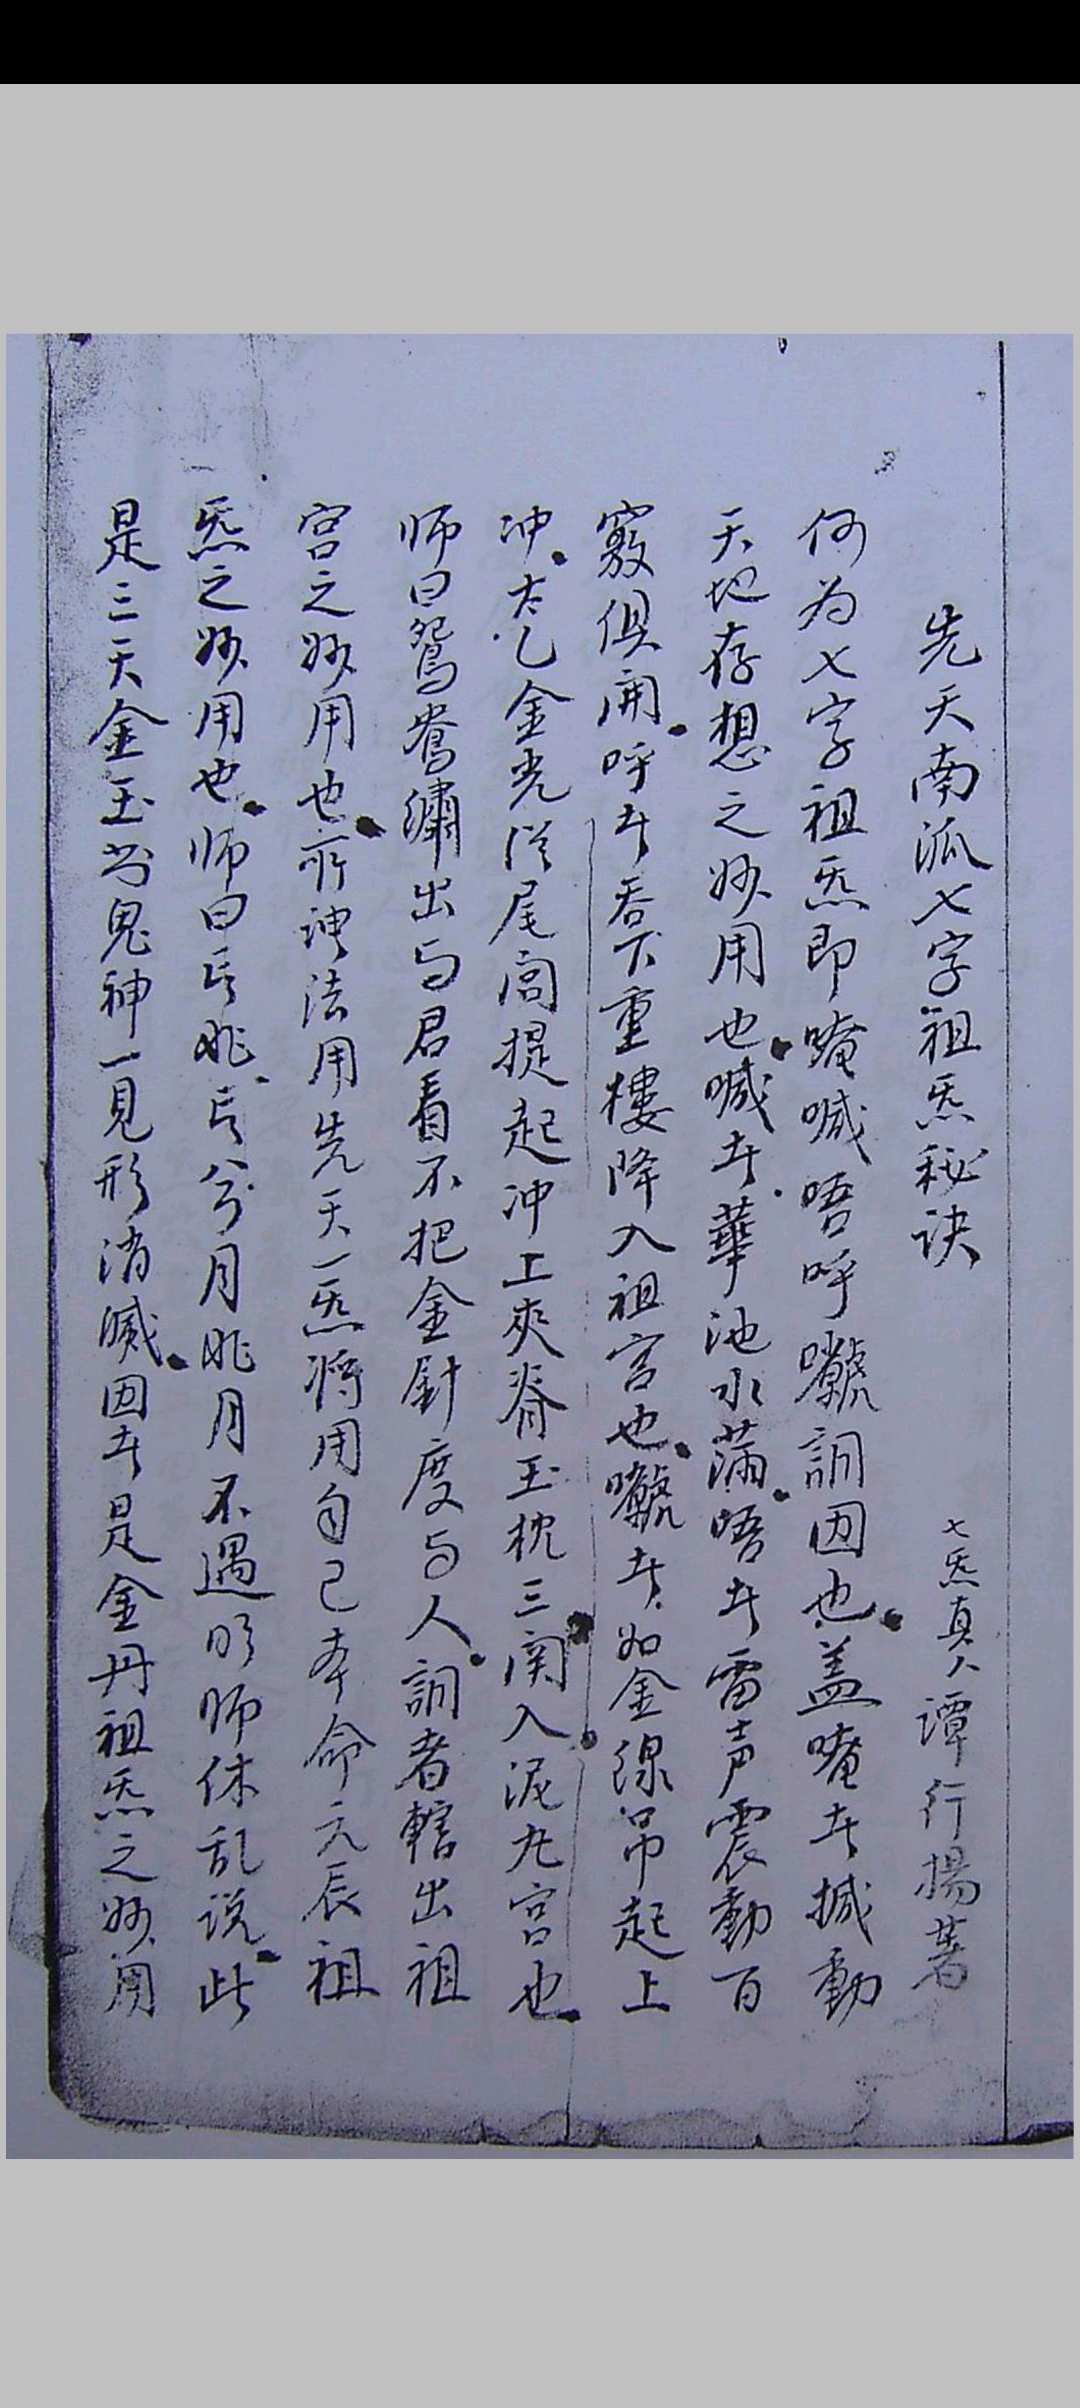 先天南派七字祖炁秘诀
七炁真人谭行揚著
何为七字祖炁即唵喊唔呼訶因也盖唵者撼動
天地存想之妙用也喊者華池水满唔者雷声震動百
竅俱開呼者吞下重樓降入祖宮也者如金線吊起上
冲太乙金光從尾閭提起冲上夾脊玉枕三関入泥丸宫也
师曰鴛鴦繡出与君看不把金針度与人訶者轄出祖
宫之妙用也所謂法用先天一炁将用自己本命元辰祖
炁之妙用也师曰月月不遇明师休乱说此
是三天金玉书鬼神一見形消滅因者是金丹祖炁之妙用